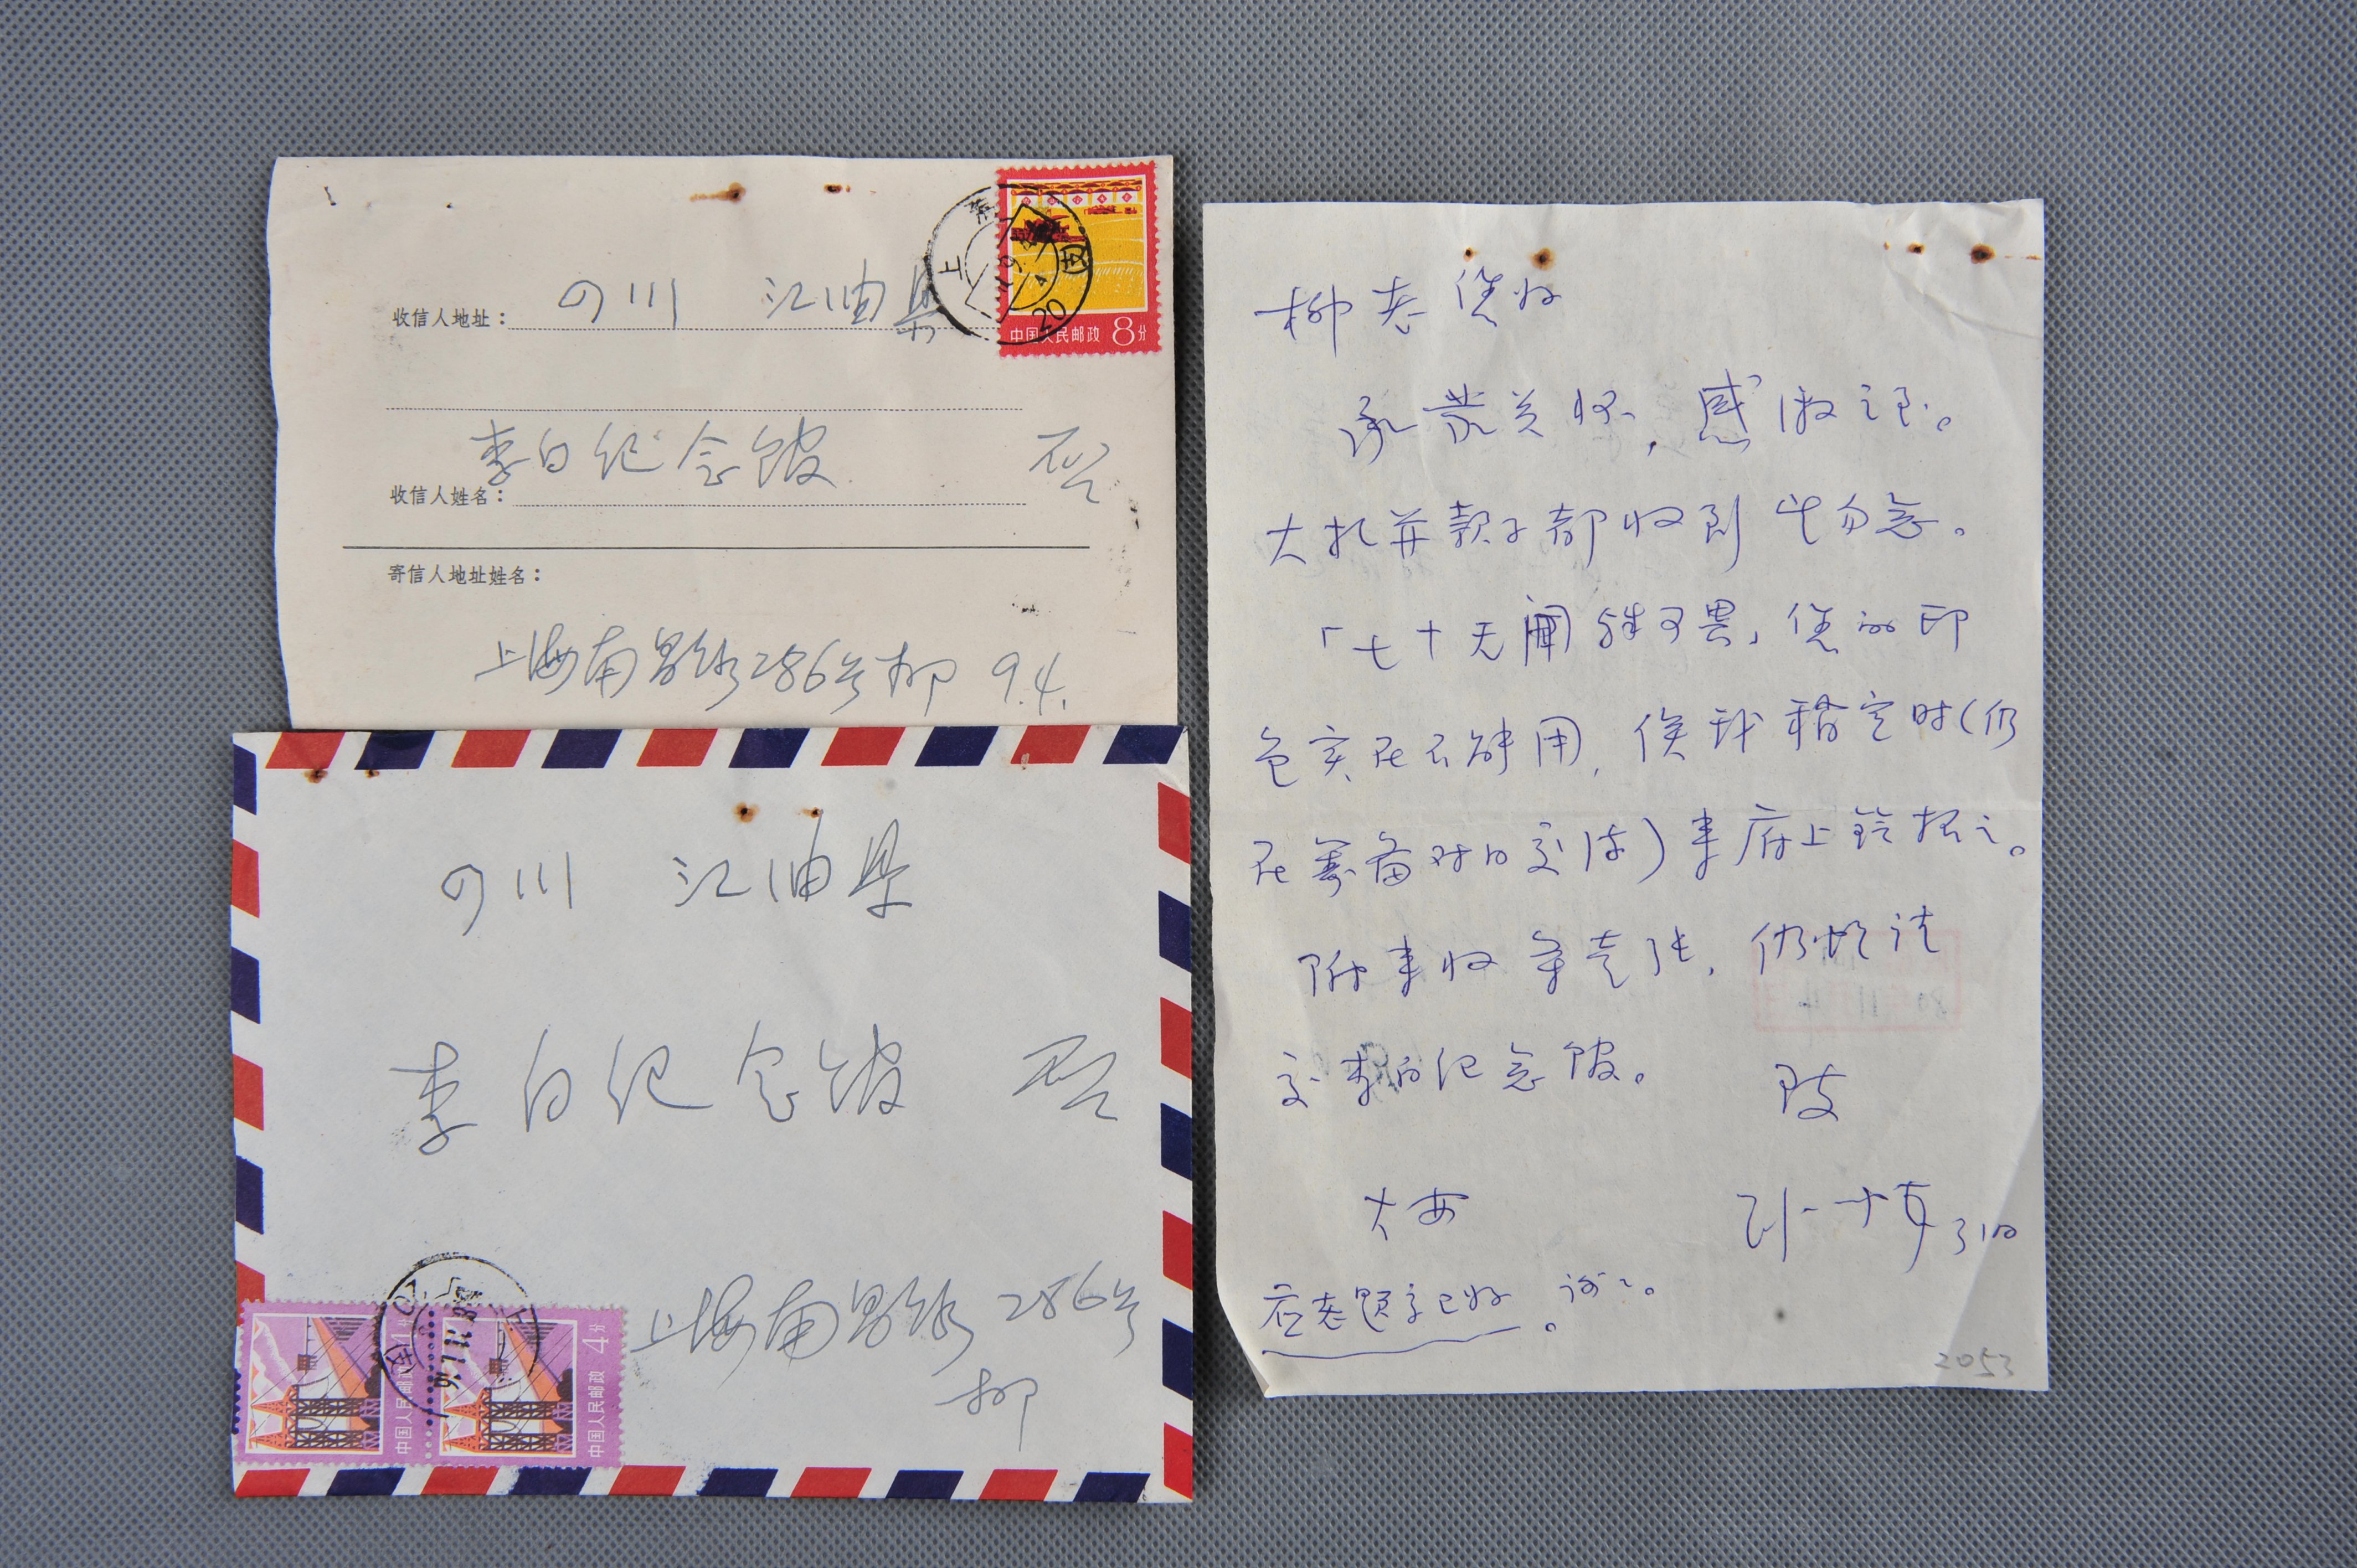 四川 江油县
收信人地址：
中国人民邮政 8分
李白纪念馆 启
收信人姓名：
寄信人地址姓名：
上海南昌路286号柳 9.4.
四川 江油县
李白纪念馆 启
上海南昌路286号
柳
中国人民邮政 4分
中国人民邮政 4分
柳老您好
承蒙关怀，感激之至。
大札并款子都收到 此勿念。
「七十无闻 可畏，您的印
包实在不能用，俟我稍定时（仍
在筹备对日交涉）来府上钤 之。
附来收条壹张，仍烦请
交李白纪念馆。 致
大安
应老题字已收。谢谢。
2053